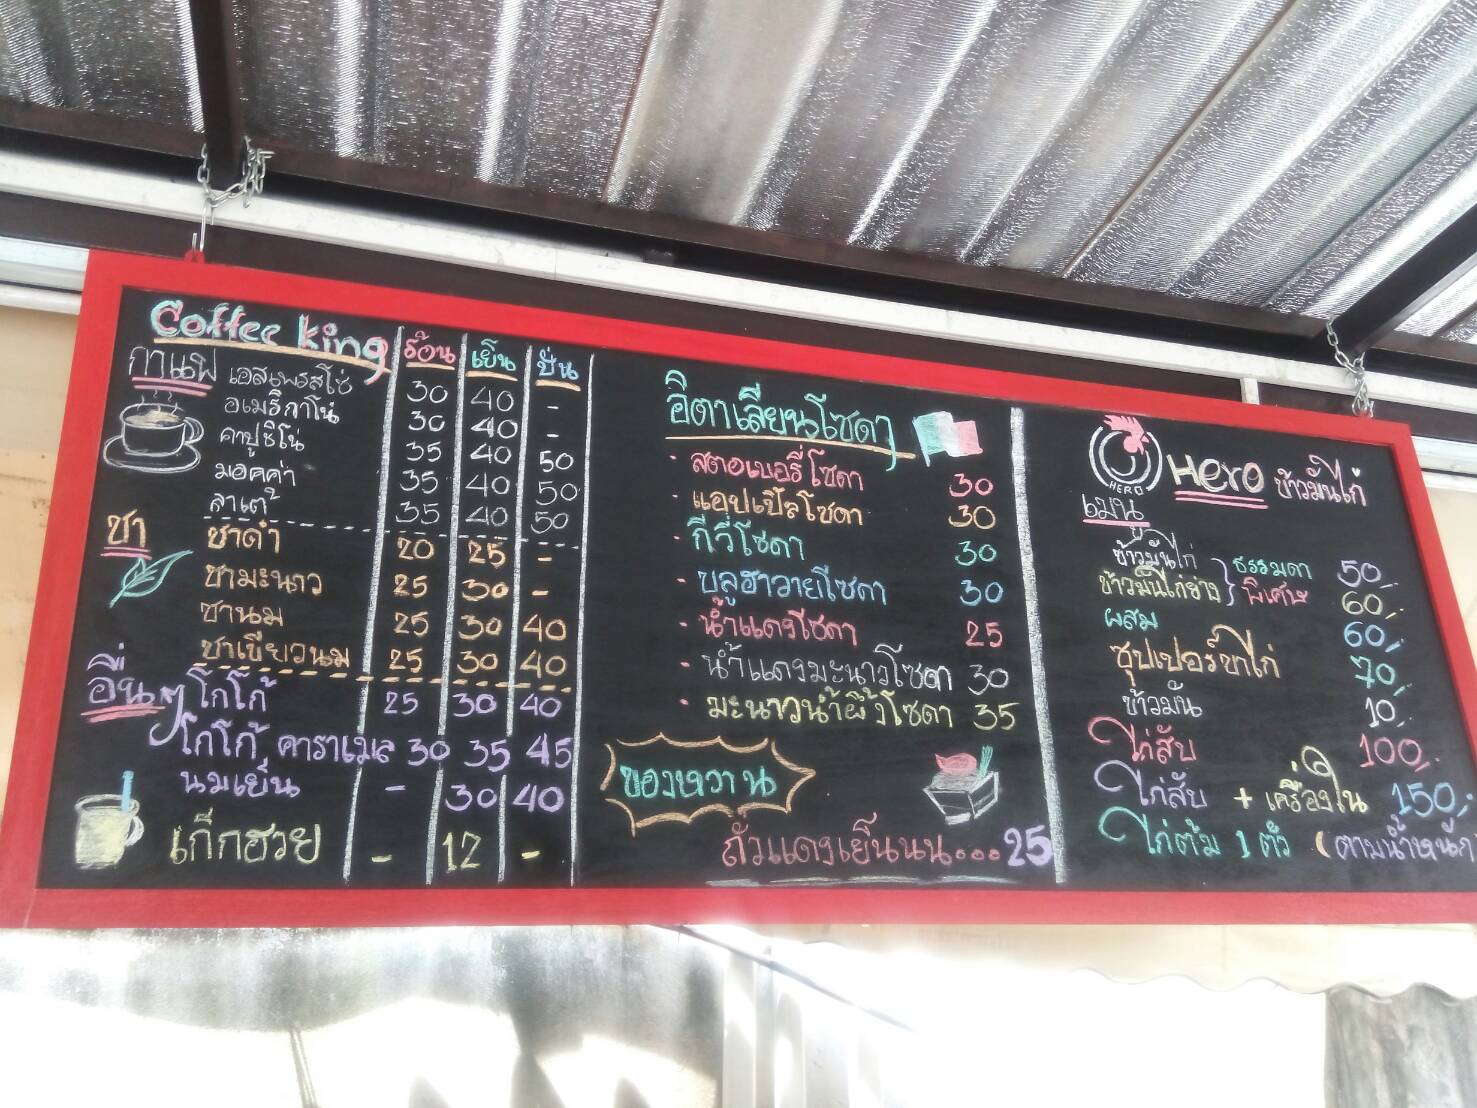 Coffee King ร้อน เย็น ปั่น
กาแฟ
เอสเพรสโซ่ 30 40 -
อเมริกาโน่ 30 40 -
คาปูชิโน่ 35 40 50
มอคค่า 35 40 50
ลาเต้ 35 40 50
ชา
ชาดำ 20 25 -
ชามะนาว 25 30 -
ชานม 25 30 40
ชาเขียวนม 25 30 40
อื่นๆ
โกโก้ 25 30 40
โกโก้ คาราเมล 30 35 45
นมเย็น - 30 40
เก๊กฮวย - 12 -
อิตาเลียนโซดา
· สตอเบอรี่โซดา 30
· แอปเปิ้ลโซดา 30
· กีวี่โซดา 30
· บลูฮาวายโซดา 30
· น้ำแดงโซดา 25
· น้ำแดงมะนาวโซดา 30
· มะนาวน้ำผึ้งโซดา 35
ของหวาน
ถั่วแดงเย็นนน...25
HERO
Hero ข้าวมันไก่
เมนู
ข้าวมันไก่ } ธรรมดา 50.-
ข้าวมันไก่ย่าง } พิเศษ 60.-
ผสม 60.-
ซุปเปอร์ขาไก่ 70.-
ข้าวมัน 10.-
ไก่สับ 100.-
ไก่สับ + เครื่องใน 150.-
ไก่ต้ม 1 ตัว (ตามน้ำหนัก